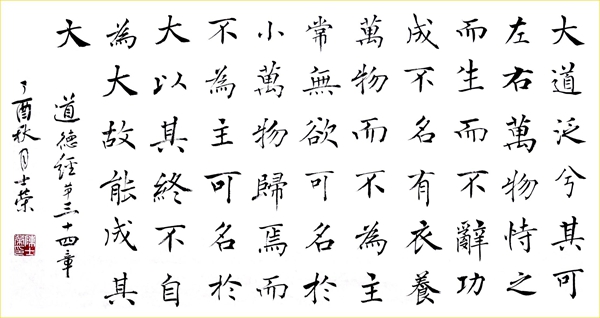 大道泛兮其可
左右萬物恃之
而生而不辭功
成不名有衣養
萬物而不為主
常無欲可名於
小萬物歸焉而
不為主可名於
大以其終不自
為大故能成其
大
道德經第三十四章
丁酉秋月士榮